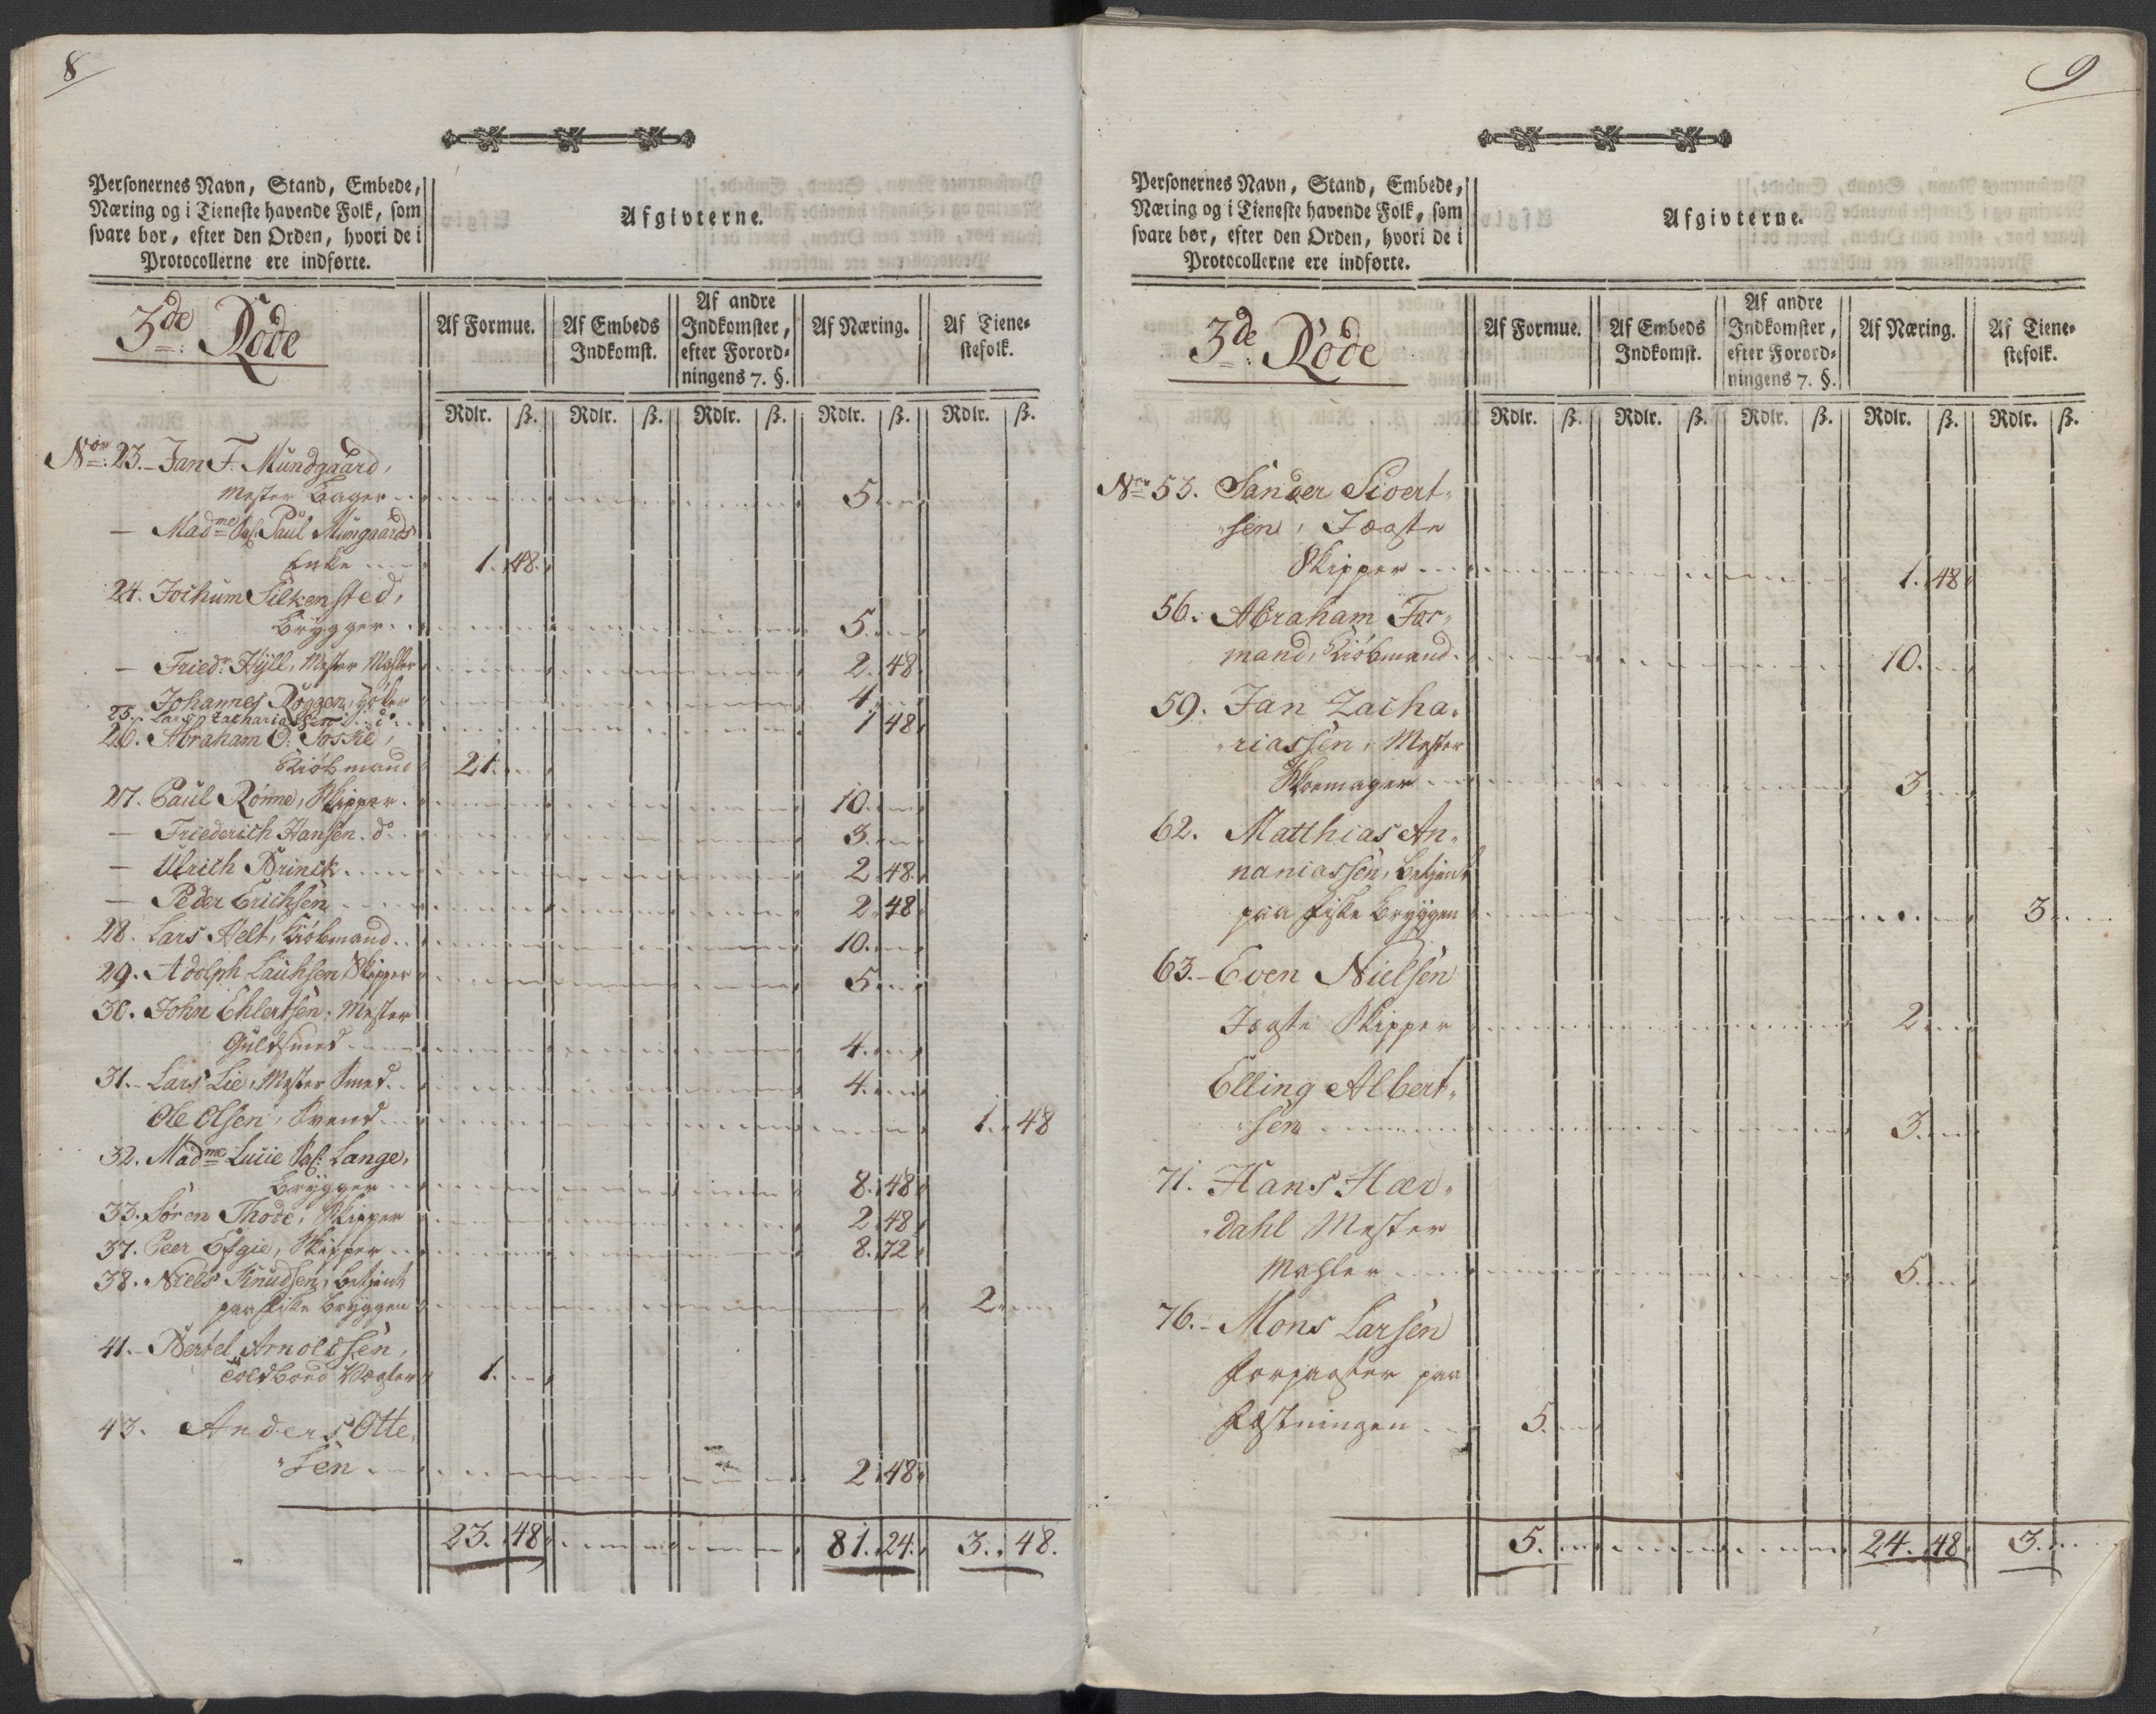 8
Personernes Navn, Stand, Embede,
Næring og i Tieneste havende Folk, som
svare bør, efter den Orden, hvori de i
Protocollerne ere indførte.
Afgivterne.
3de Rode
Af Formue. Af Embeds Indkomst. Af andre Indkomster, efter Forordningens 7. §. Af Næring. Af Tienestefolk.
Rdlr. ß. Rdlr. ß. Rdlr. ß. Rdlr. ß. Rdlr. ß.
No 23. Jan F. Mundgaard,
Mester Bager 5
— Madme Sal. Paul Mungaards
Enke 1. 48.
24. Jochum Silkensted,
Brygger 5
— Friedr. Hÿll, Mester Mahler 2. 48
Johannes Roggen, 4
25. Lars Zachariassen do 1 48
26. Abraham O. Toske,
Kiøbmand 21
27. Paul Rönne, Skipper 10
— Friederich Hansen do 3
— Ulrich Brinck 2. 48
— Peder Erichsen 2. 48
28. Lars Helt, Kiøbmand 10
29. Adolph Lauhsen Skipper 5
30. John Ehlertsen, Mester
Guldsmed 4
31. Lars Lie, Mester Smed 4
Ole Olsen, Svend 1. 48
32. Madme Lucie Sal. Lange,
Brygger 8. 48
33. Sören Thode, Skipper 2. 48
37. Peer Esgie, Skipper 8. 72
38. Niels Knudsen, betjent
paa Fiske Bryggen 2
41. Bertel Arnoldsen,
Toldboed Vogter 1
43. Anders Otte,
sen 2. 48
23. 48 81. 24. 3. 48.
9
Personernes Navn, Stand, Embede,
Næring og i Tieneste havende Folk, som
svare bør, efter den Orden, hvori de i
Protocollerne ere indførte.
Afgivterne.
3de Rode
Af Formue. Af Embeds Indkomst. Af andre Indkomster, efter Forordningens 7. §. Af Næring. Af Tienestefolk.
Rdlr. ß. Rdlr. ß. Rdlr. ß. Rdlr. ß. Rdlr. ß.
No 53. Sander Sivert,
sen, Jægte
Skipper 1. 48
56. Abraham For,
mand, Kiøbmand 10.
59. Jan Zacha,
riassen, Mester
Skoemager 3
62. Matthias An,
naniassen, betjent
paa Fiske Bryggen 3
63. Even Nielsen
Jægte Skipper 2
Elling Albert,
sen 3
71. Hans Hær,
dahl Mester
Mahler 5
76. Mons Larsen
Forpagter paa
Fæstningen 5.
5. 24. 48 3.